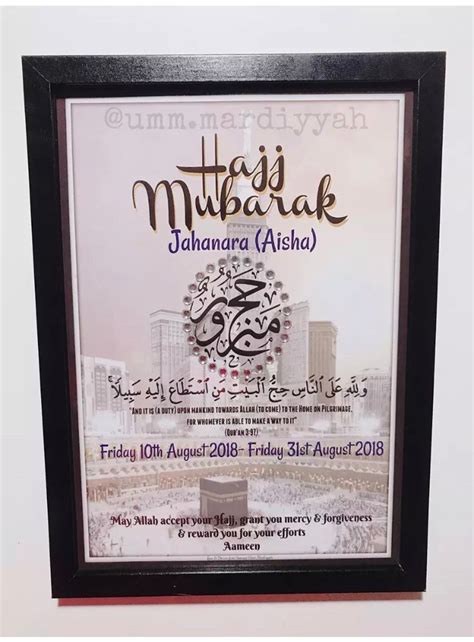 @umm.mardiyyah
Hajj
Mubarak
Jahanara (Aisha)
حج
مبرور
وَلِلَّهِ عَلَى ٱلنَّاسِ حِجُّ ٱلْبَيْتِ مَنِ ٱسْتَطَاعَ إِلَيْهِ سَبِيلًا ۚ
"And it is (a duty) upon mankind towards Allah (to come) to the Home on Pilgrimage,
for whomever is able to make a way to it"
(Qur'an 3:97)
Friday 10th August 2018- Friday 31st August 2018
May Allah accept your Hajj, grant you mercy & forgiveness
& reward you for your efforts
Aameen